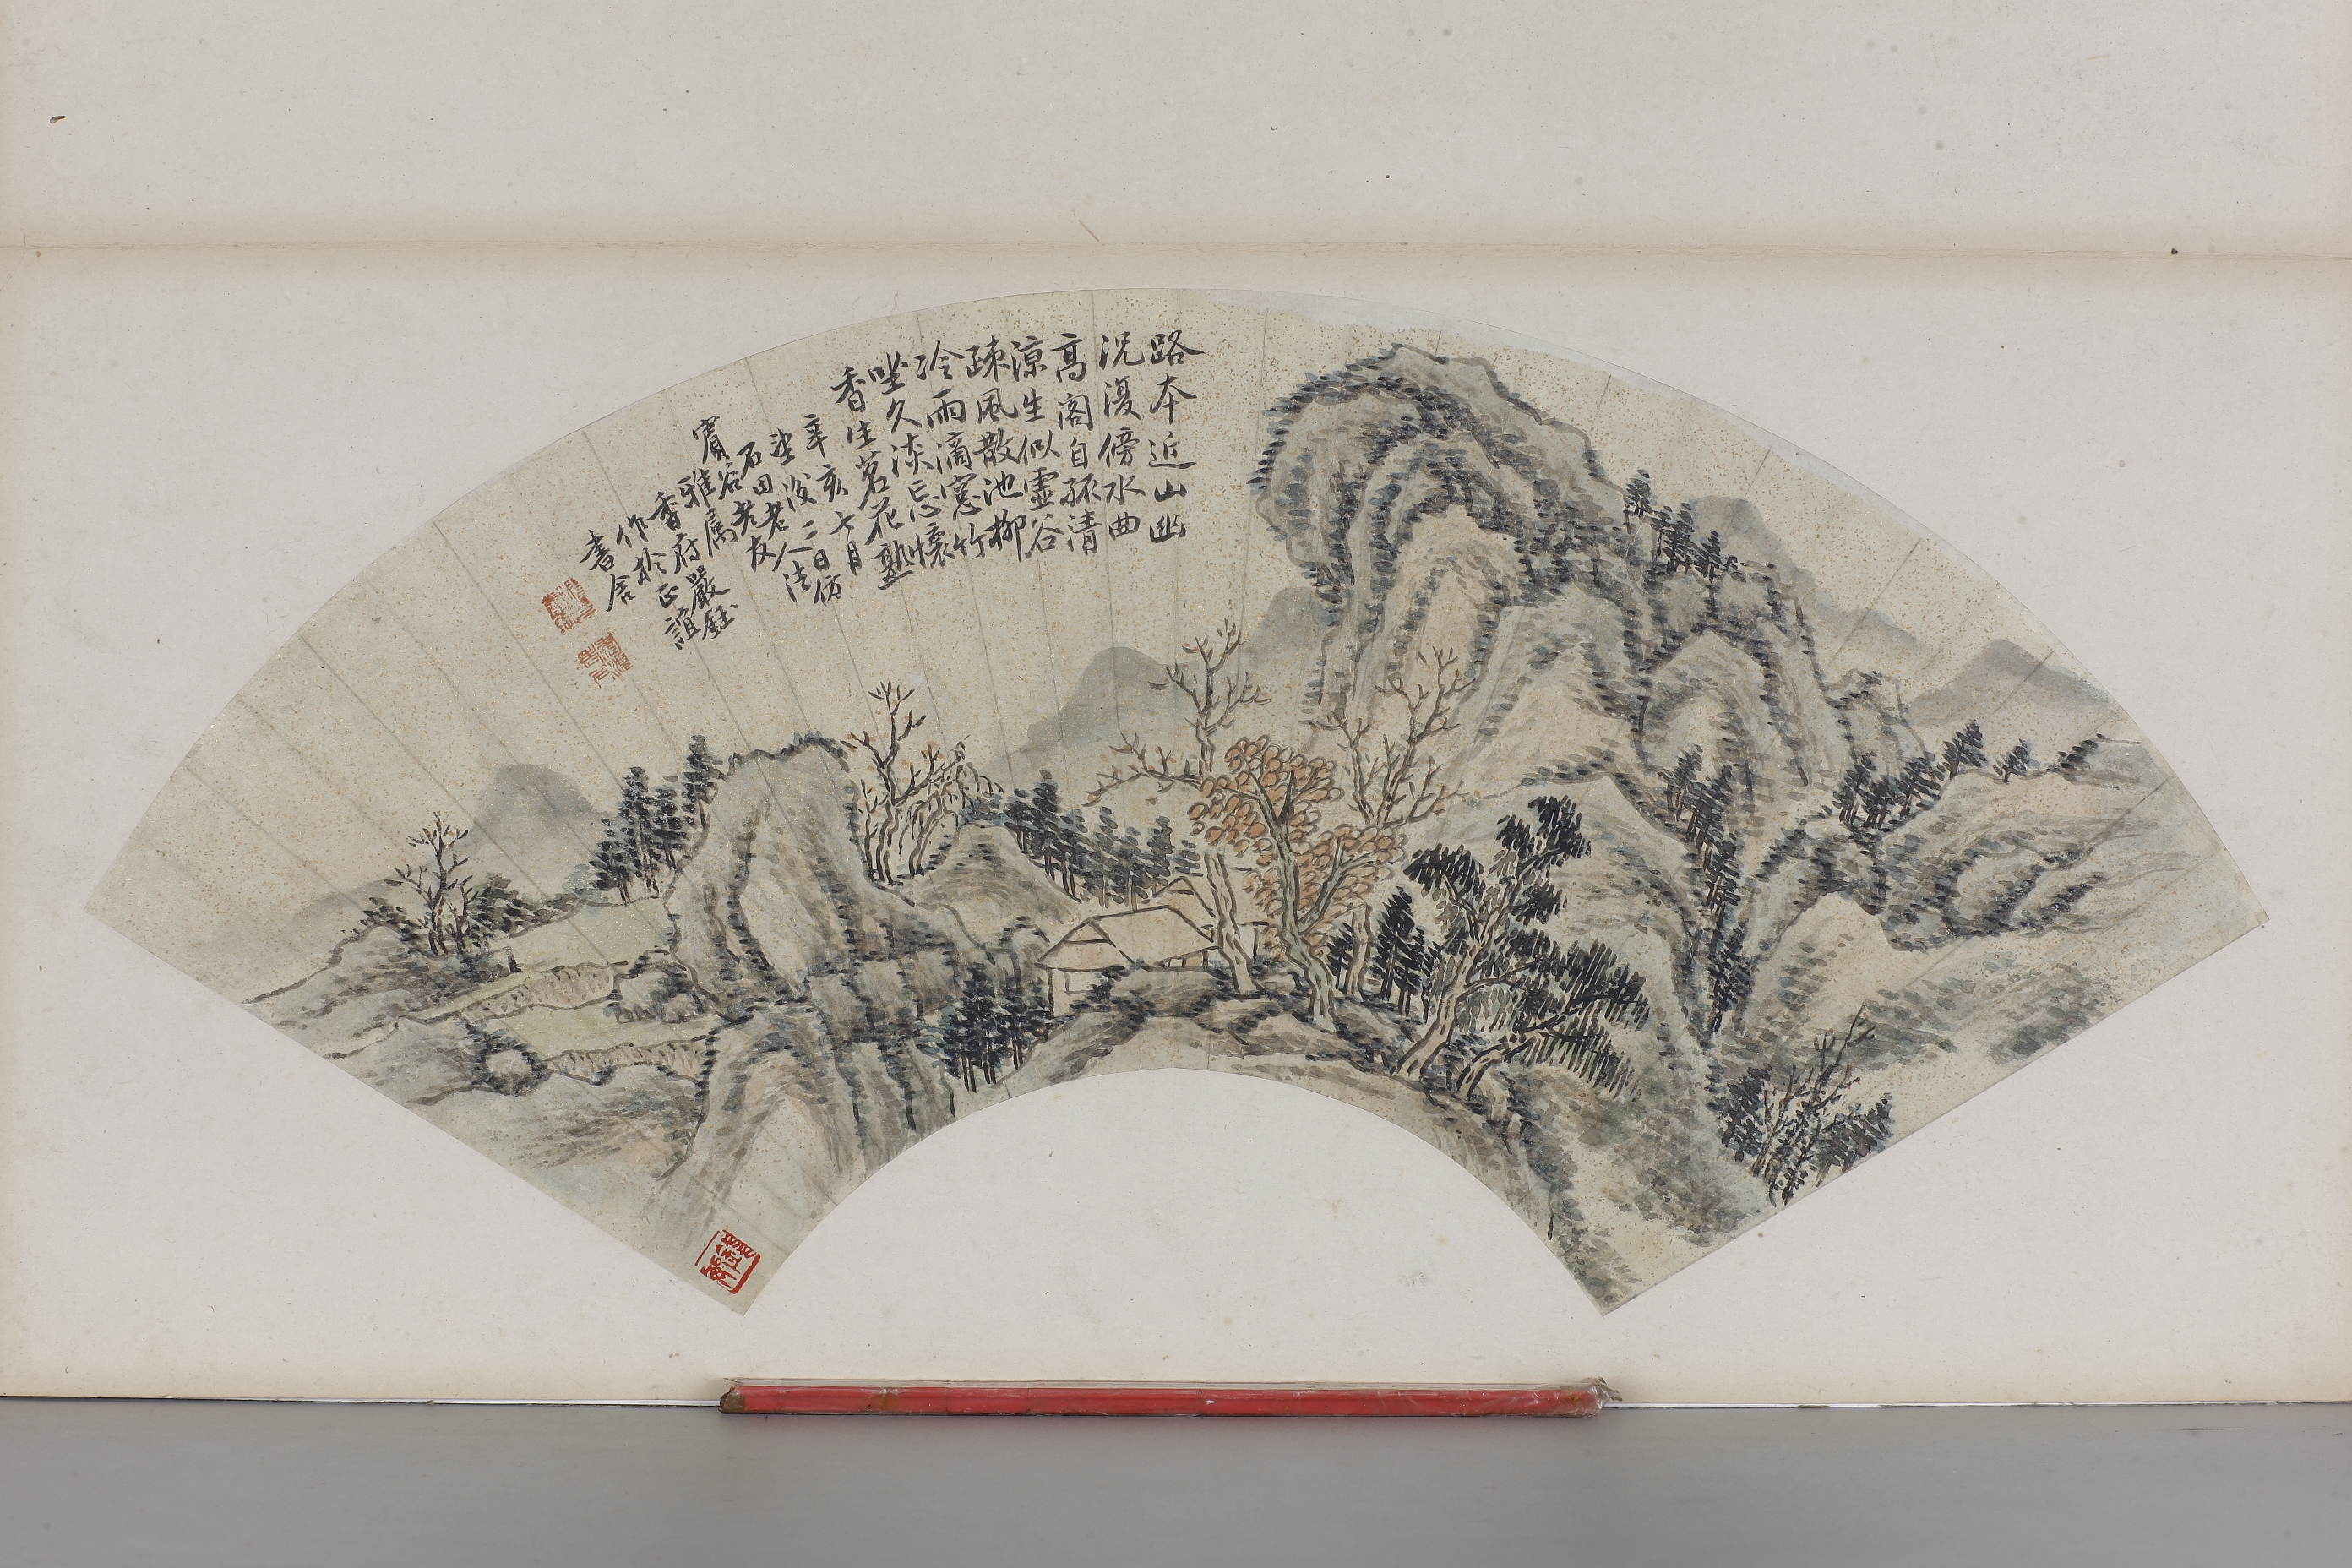 路本近山幽
況復傍水曲
高閣自孤清
涼生似虛谷
疎風散池柳
冷雨滴窻竹
坐久淡忘懷
香生茗花熟
辛亥七月
望後二日仿
石田老人法
賓谷老友
雅属
香府嚴鈺
作於正誼
書舍